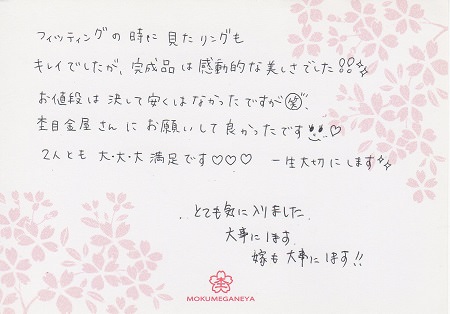 フィッティングの時に見たリングも
キレイでしたが、完成品は感動的な美しさでした!!
お値段は決して安くはなかったですが(笑)、
杢目金屋さんにお願いして良かったです♡
2人とも大・大・大満足です♡♡♡ 一生大切にします
とても気に入りました。
大事にします。
嫁も大事にします!!
MOKUMEGANEYA